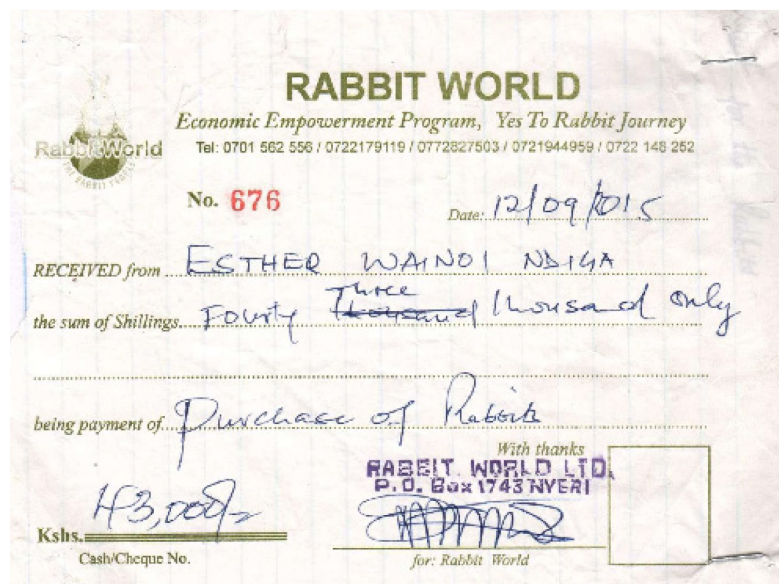 RABBIT WORLD
Economic Empowerment Program, Yes To Rabbit Journey
Rabbit World
THE RABBIT PEOPLE
Tel: 0701 562 556 / 0722179119 / 0772827503 / 0721944959 / 0722 148 252
No. 676
Date: 12/09/2015
RECEIVED from ESTHER WAINOI NDIGA
Three
the sum of Shillings Fourty Thousand Thousand only
being payment of Purchase of Rabbits
With thanks
RABBIT WORLD LTD.
P.O. Box 1743 NYERI
Kshs. 43,000/=
Cash/Cheque No.
for: Rabbit World